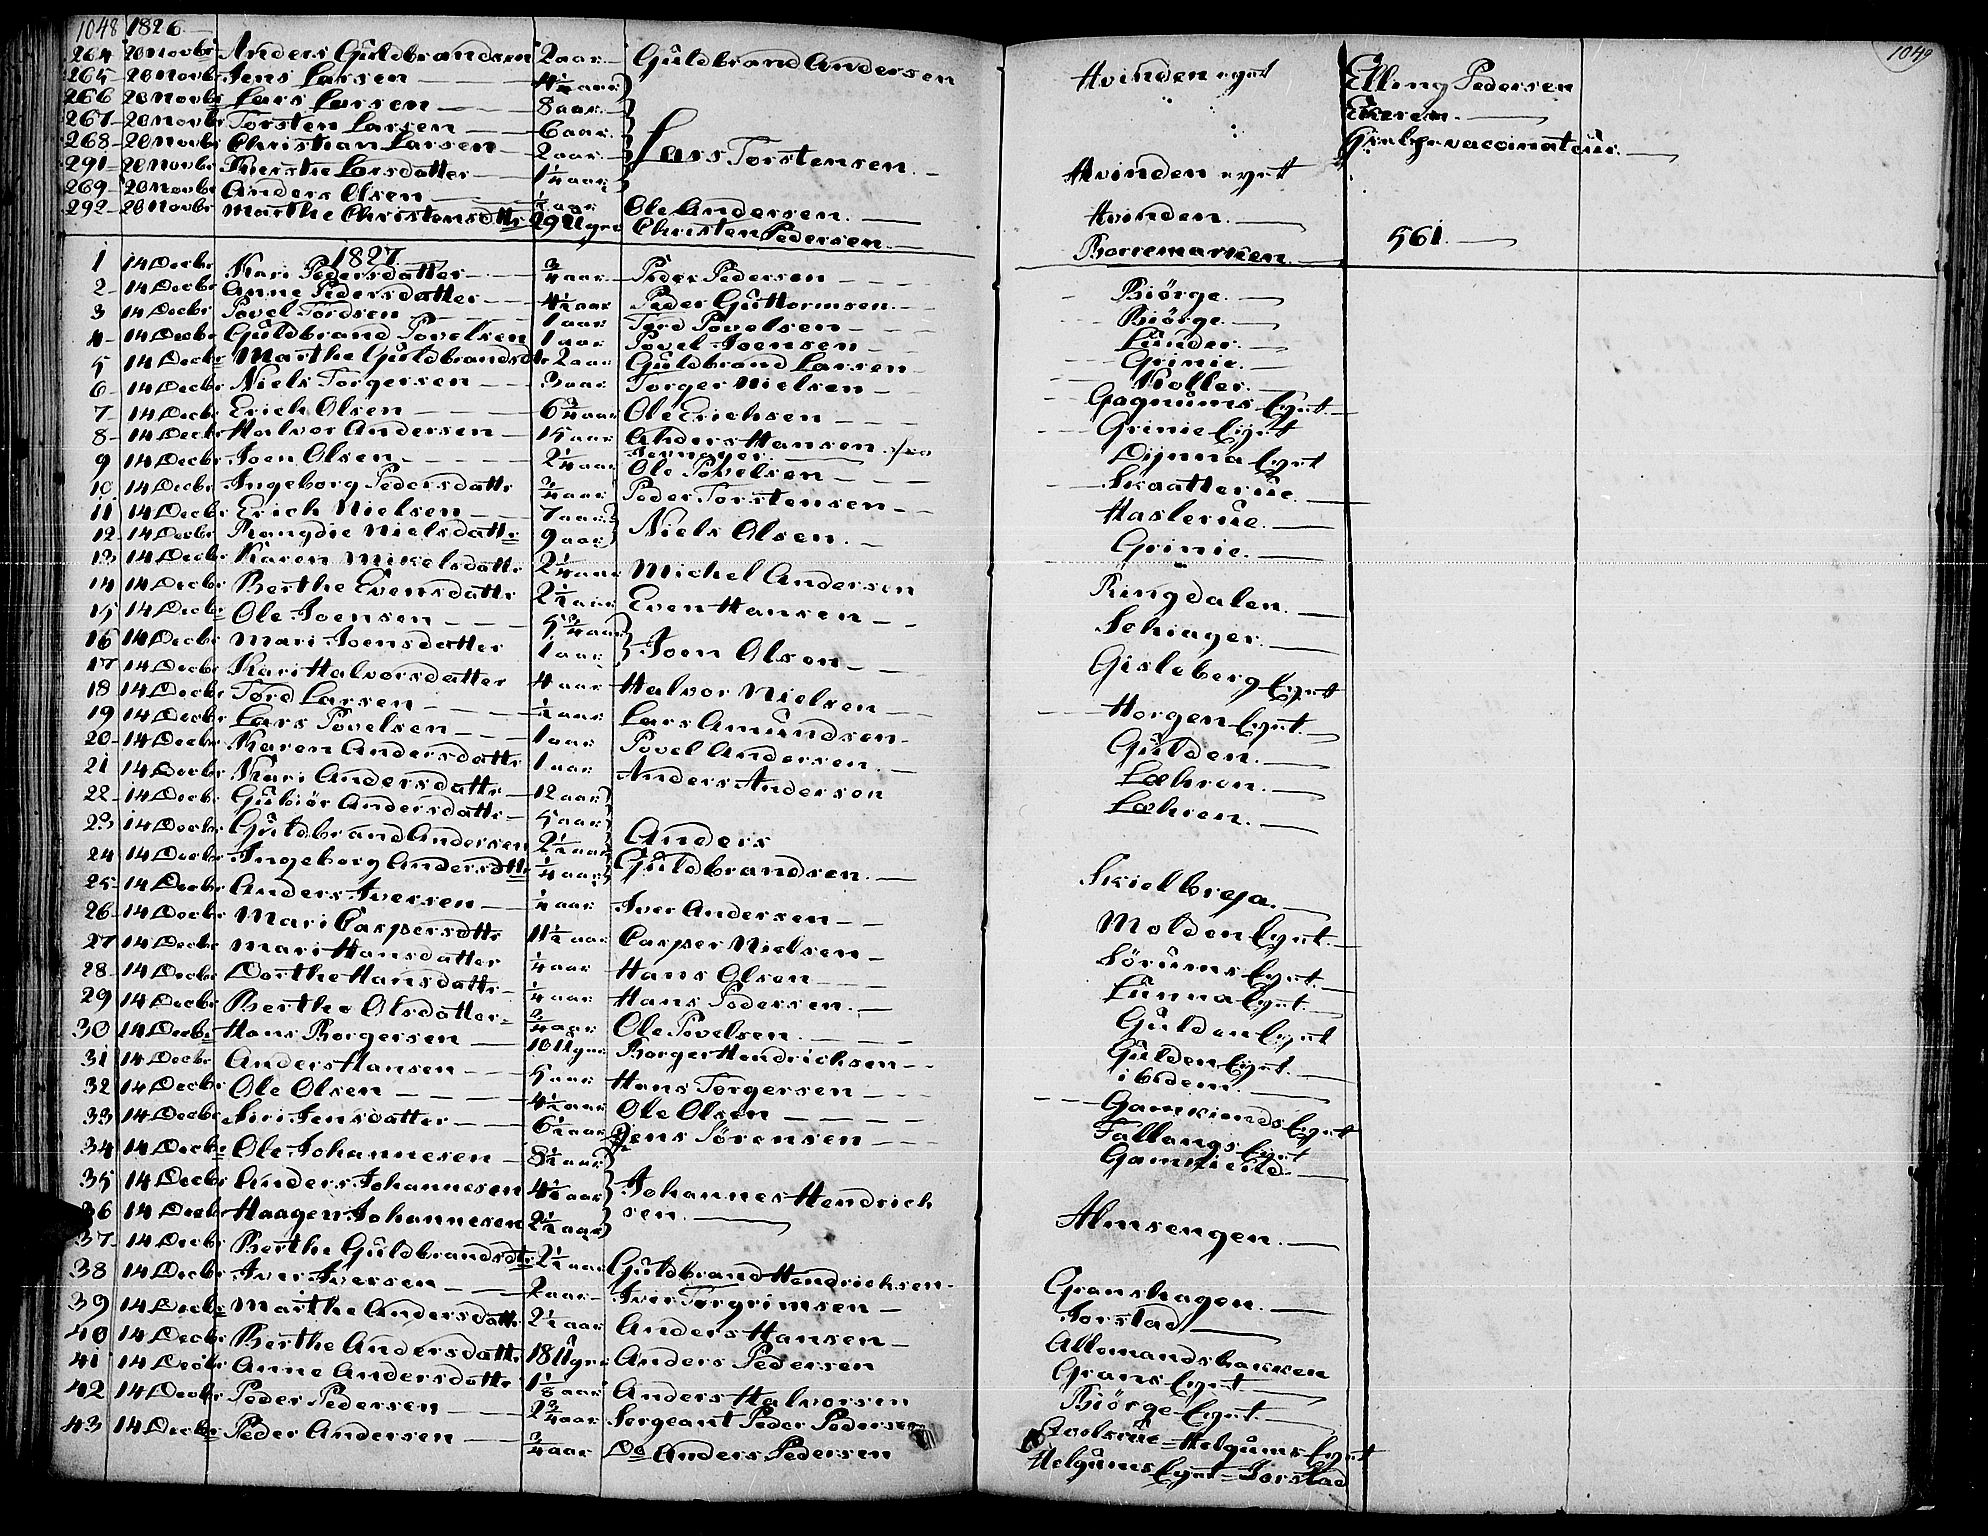 1048 1826 1049
264 20 Novbr Anders Guldbrandsen 2 aar Guldbrand Andersen Hvinden eyet Elling Pedersen
265 20 Novbr Jens Larsen 4½ aar Ekeren
266 20 Novbr Lars Larsen 8 aar
267 20 Novbr Torsten Larsen 6 aar Lars Torstensen Hvinden eyet
268 20 Novbr Christian Larsen 2 aar vaccinateur
291 20 Novbr Kierstie Larsdatter 1¼ aar
269 20 Novbr Anders Olsen ½ aar Ole Andersen Hvinden
292 20 Novbr Marthe Christensdttr 29 Uger Christen Pedersen Borremarken 561
1827
1 14 Decbr Kari Pedersdatter ¾ aar Peder Pedersen Biörge
2 14 Decbr Anne Pedersdatter 4½ aar Peder Guttormsen Biörge
3 14 Decbr Povel Tordsen 1 aar Tord Povelsen Lunder
4 14 Decbr Guldbrand Povelsen 1 aar Povel Joensen Grinie
5 14 Decbr Marthe Guldbrandsdtr 2 aar Guldbrand Larsen Koller
6 14 Decbr Niels Torgersen 3 aar Torger Nielsen Gagnums Eyet
7 14 Decbr Erich Olsen 6¾ aar Ole Erichsen Grinie Eyet
8 14 Decbr Halvor Andersen 15 aar Anders Hansen Dynna Eyet
9 14 Decbr Joen Olsen 2¼ aar Ole Povelsen Skaatterue
10 14 Decbr Ingeborg Pedersdattr ¾ aar Peder Torstensen Haslerue
11 14 Decbr Erich Nielsen 7 aar Niels Olsen Grinie
12 14 Decbr Rangdie Nielsdattr 9 aar
13 14 Decbr Karen Mikelsdattr 2¼ aar Michel Andersen Ringdalen
14 14 Decbr Berthe Evensdattr 2½ aar Even Hansen Sehiager
15 14 Decbr Ole Joensen 5¾ aar Joen Olsen Gisleberg Eyet
16 14 Decbr Mari Joensdatter 1 aar
17 14 Decbr Kari Halvorsdatter 4 aar Halvor Nielsen Horgen Eyet
18 14 Decbr Tord Larsen ½ aar Lars Amundsen Gulden
19 14 Decbr Lars Povelsen 1 aar Povel Andersen Læhren
20 14 Decbr Karen Andersdattr 1 aar Anders Andersen Læhren
21 14 Decbr Kari Andersdattr 12 aar
22 14 Decbr Gubiör Andersdattr 5 aar Anders
23 14 Decbr Guldbrand Andersen 2½ aar Guldbrandsen Skielbreja
24 14 Decbr Ingeborg Andersdttr ¼ aar
25 14 Decbr Anders Iversen ¼ aar Iver Andersen Molden Eyet
26 14 Decbr Mari Caspersdttr 11½ aar Casper Nielsen Sörums Eyet
27 14 Decbr Mari Hansdatter ¼ aar Hans Olsen Lunna Eyet
28 14 Decbr Dorthe Hansdattr ¼ aar Hans Pedersen Gulden Eyet
29 14 Decbr Berthe Olsdatter ¾ aar Ole Povelsen Gulden Eyet
30 14 Decbr Hans Borgersen 10 Uger Borger Hendrichsen ibidem
31 14 Decbr Anders Hansen 5 aar Hans Torgersen Gamkiends Eyet
32 14 Decbr Ole Olsen 4½ aar Ole Olsen Fallangs Eyet
33 14 Decbr Siri Jensdatter 6½ aar Jens Sörensen Gamkiend
34 14 Decbr Ole Johannesen 8½ aar
35 14 Decbr Anders Johannesen 4½ aar Johannes Hendrich
36 14 Decbr Haagen Johannesen 2½ aar sen Almsengen
37 14 Decbr Berthe Guldbrandsdtr 2½ aar Guldbrand Hendrichsen Granshagen
38 14 Decbr Iver Iversen 2 aar Iver Torgrimsen Jorstad
39 14 Decbr Marthe Andersdattr 2½ aar Anders Hansen Allemandsbakken
40 14 Decbr Berthe Andersdattr 18 Uger Anders Pedersen Grans Eyet
41 14 Decbr Anne Andersdattr 1⅛ aar Anders Halvorsen Biörge Eyet
42 14 Decbr Peder Pedersen 2¾ aar Sergeant Peder Pedersen Helgums Eyet
43 14 Decbr Peder Andersen ¾ aar Do Anders Pedersen Helgums Eyet Jorstad